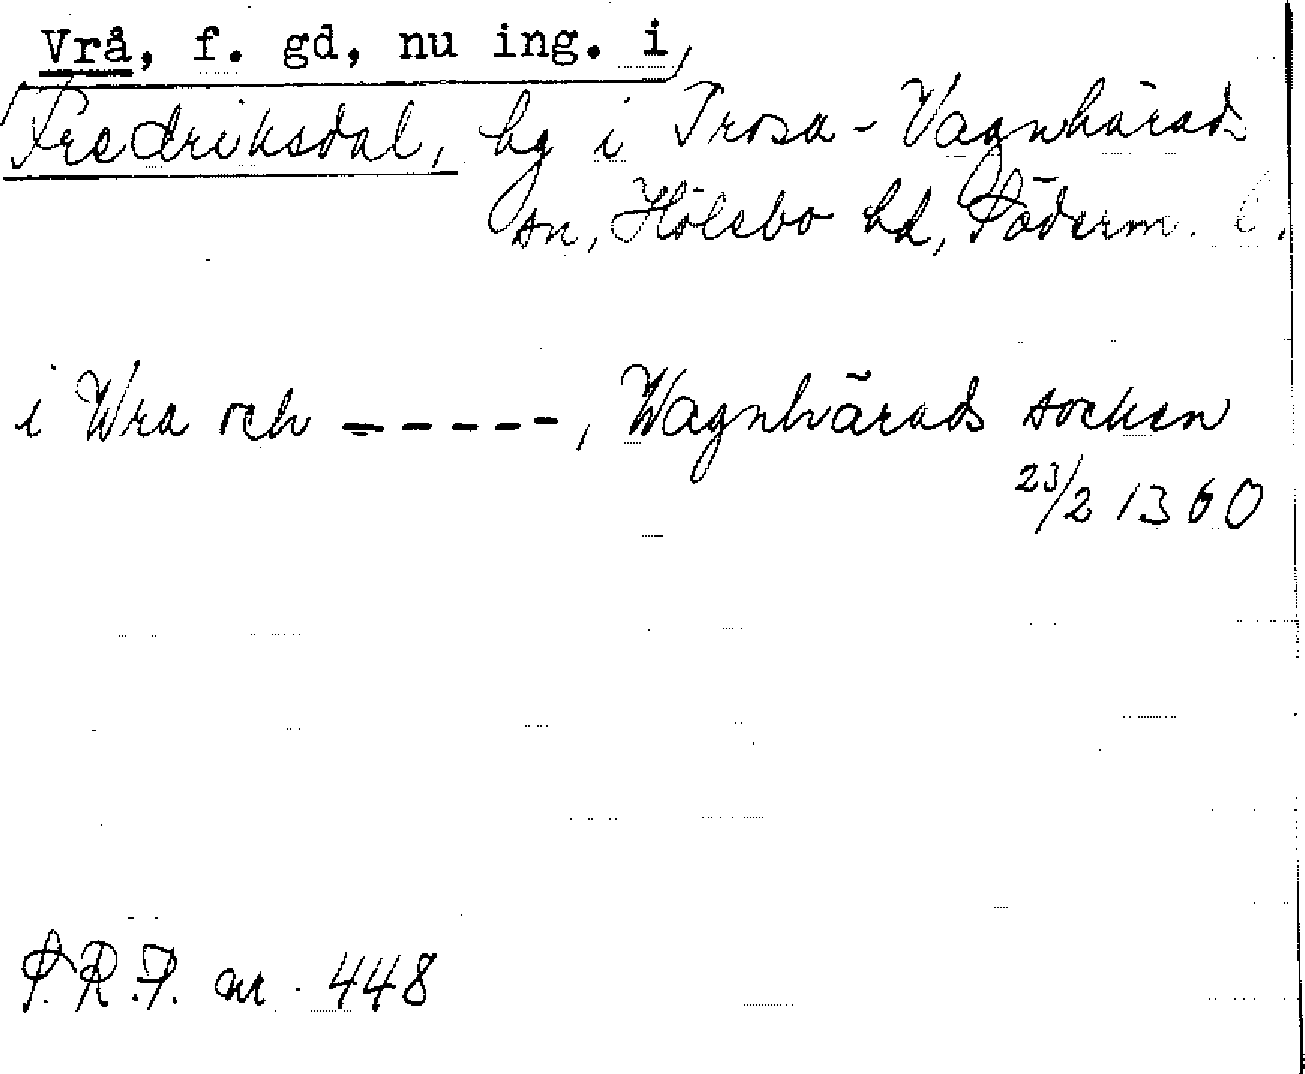 Vrå, f. gd, nu ing. i
Fredriksdal, hg i Trosa-Vagnhärads
sn, Hölebo hd, Söderm. l.
i Wra och - - - - -, Wagnhärads socken
23/2 1360
S.R.P. nr. 448